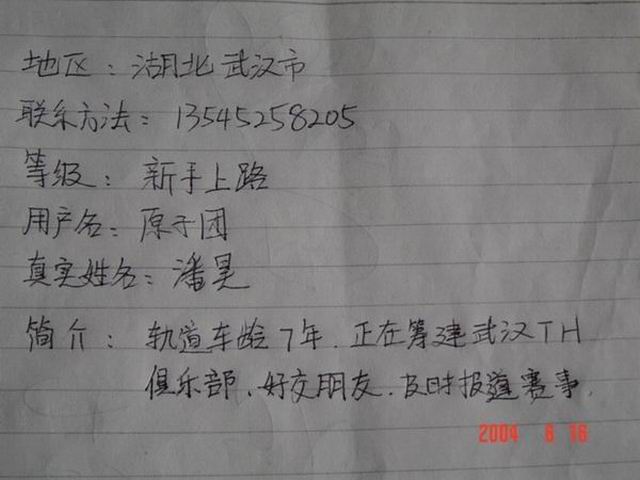 地区：湖北武汉市
联系方法：13545258205
等级：新手上路
用户名：原子团
真实姓名：潘昊
简介：轨道车龄7年.正在筹建武汉TH
俱乐部、好交朋友.及时报道赛事.
2004 6 16